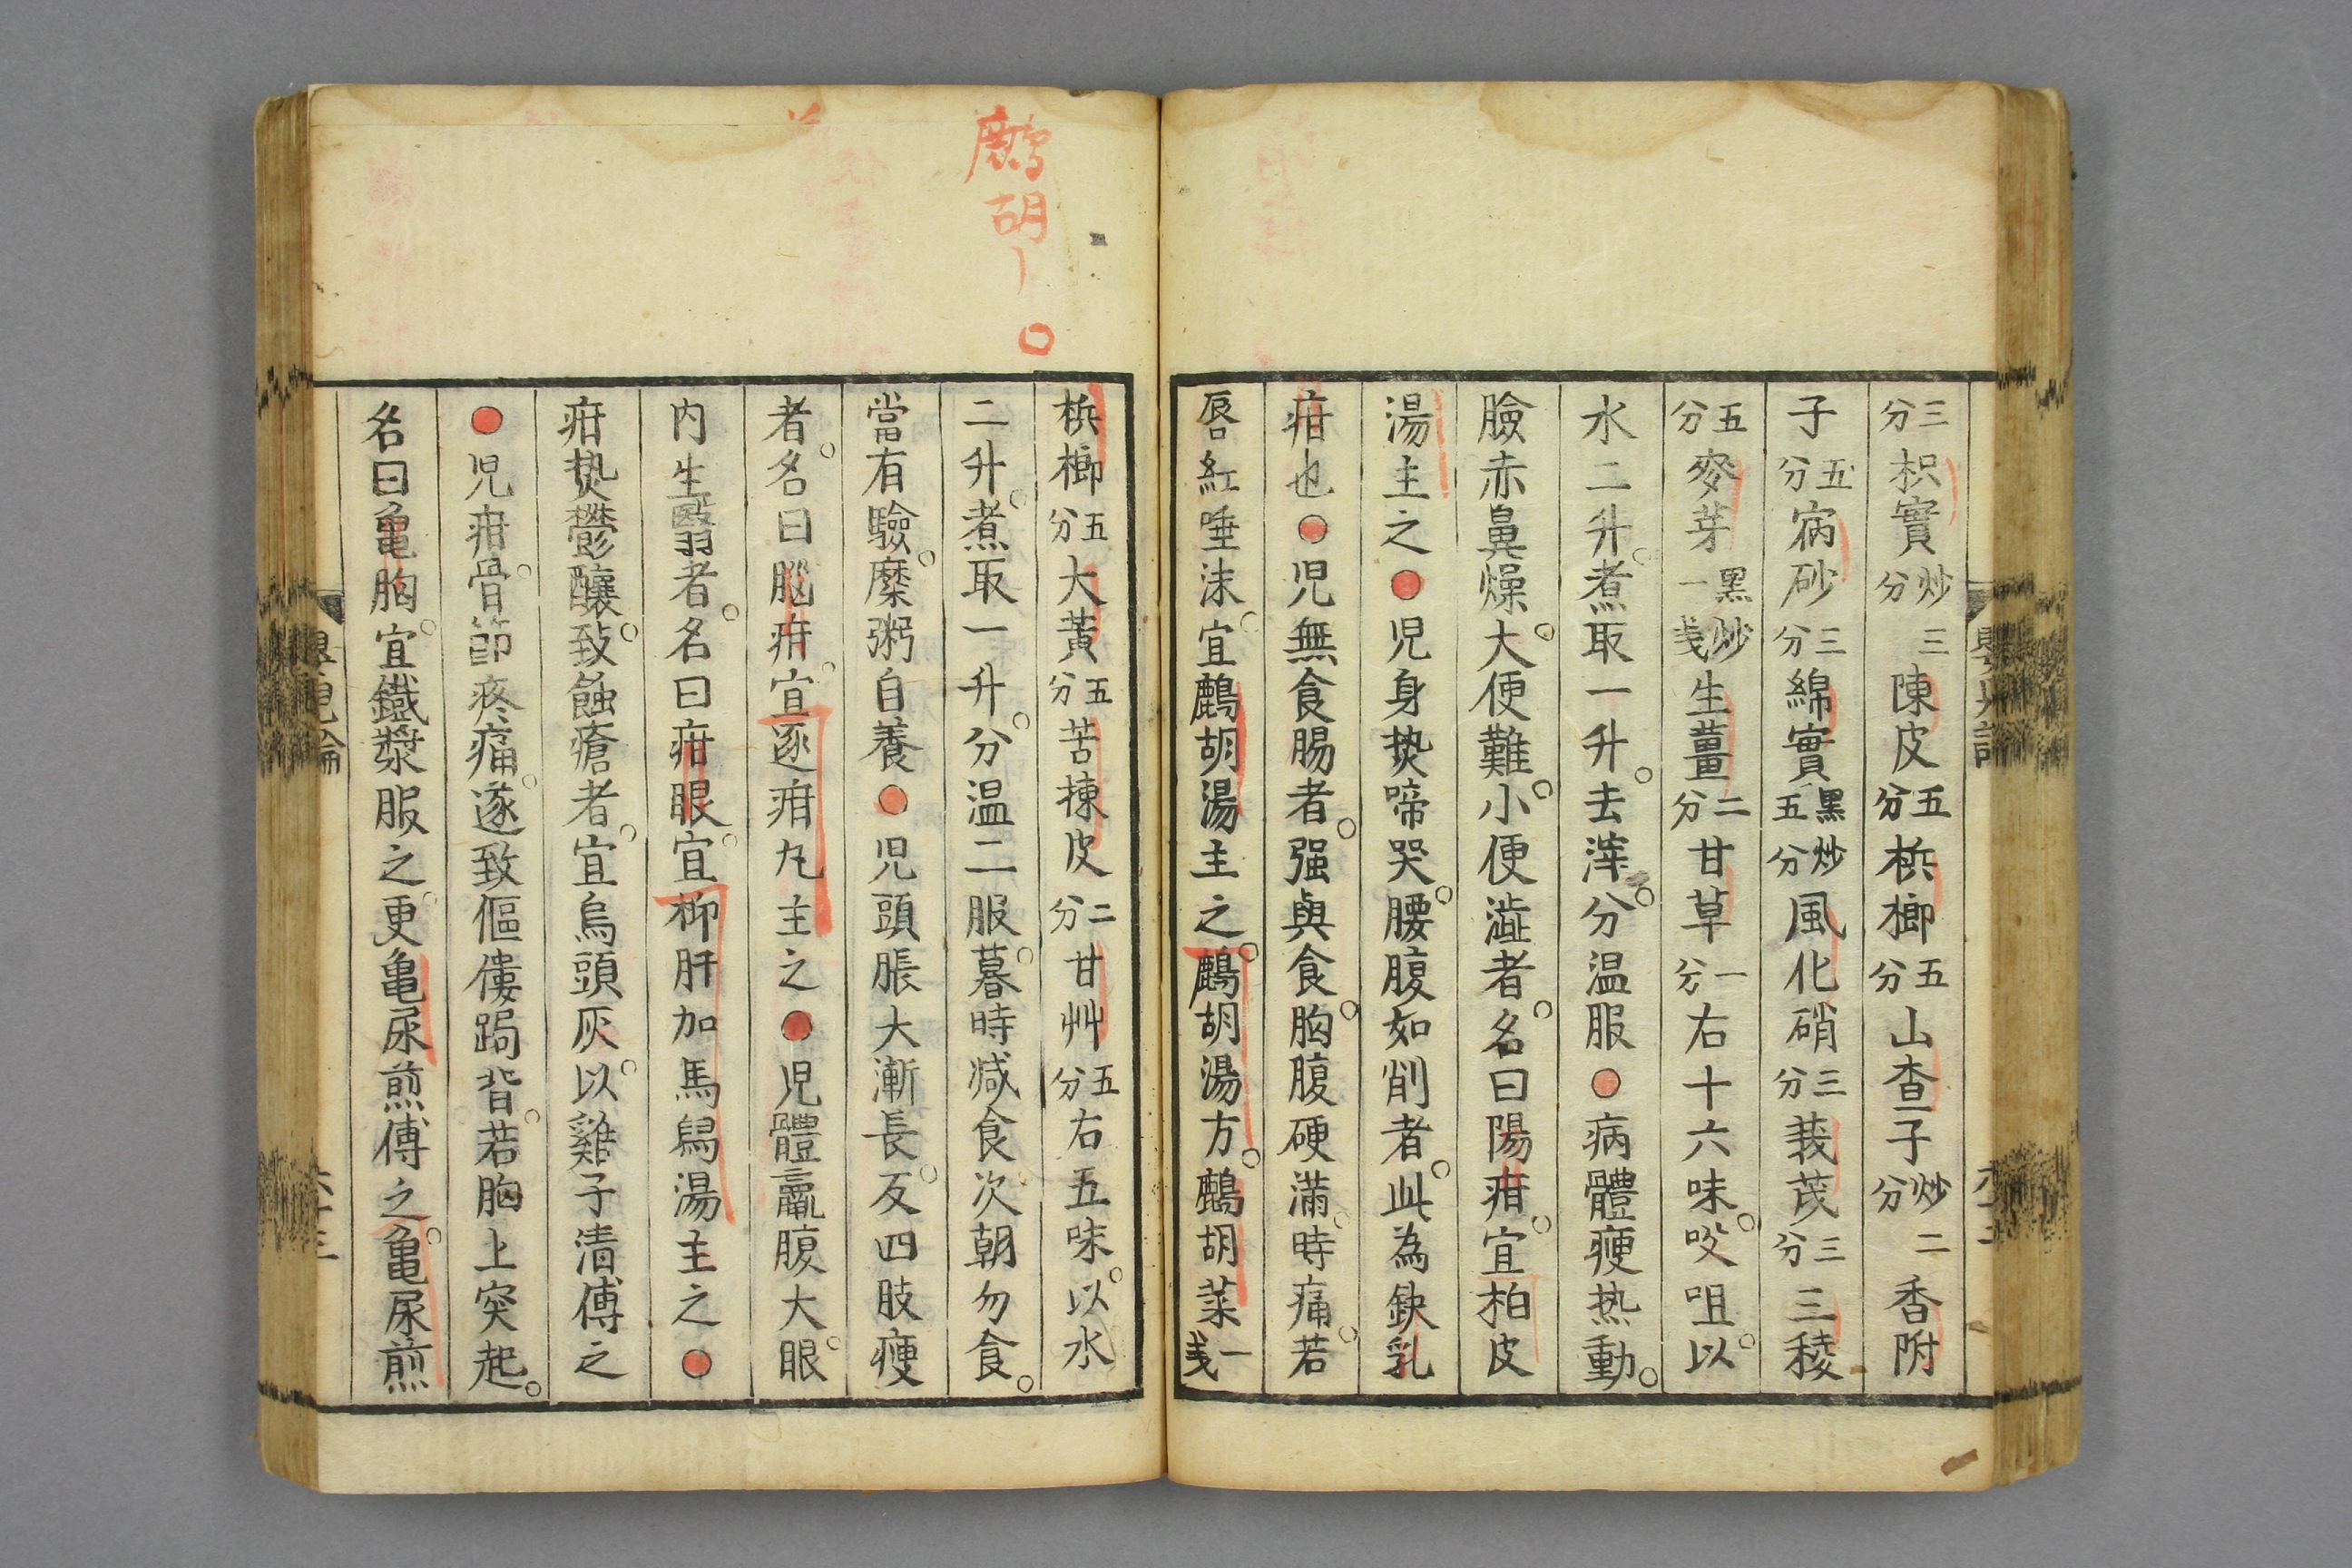 三分枳實炒三分陳皮五分梹榔五分山査子炒二分香附
子五分硇砂三分綿實黑炒五分風化硝三分莪茂三分三稜
五分麥芽黑炒一戔生薑二分甘草一分右十六味。㕮咀。以
水二升。煮取一升。去滓。分温服●病體瘦热動。
臉赤鼻燥。大便難。小便澁者。名曰陽疳。宜柏皮
湯主之●児身热啼哭。腰腹如削者。此為鈌乳
疳也●児無食腸者。强與食。胸腹硬滿。時痛。若
唇紅唾沫。宜鷓胡湯主之。鷓胡湯方。鷓胡菜一戔
梹榔五分大黃五分苦楝皮二分甘艸五分右五味。以水
二升。煮取一升。分温二服。暮時减食。次朝勿食。
當有驗。糜粥自養●児頭脹大漸長。反四肢瘦
者。名曰腦疳。宜逐疳丸主之●児體羸腹大。眼
内生翳者。名曰疳眼。宜柳肝加馬舄湯主之●
疳热鬱釀。致蝕瘡者。宜烏頭灰。以雞子清傅之
●児疳骨。節疼痛。遂致傴僂跼背。若胸上突起。
名曰亀胸。宜鐵漿服之。更亀尿煎傅之。亀尿煎
鷓胡〡○
嬰児論
六十三